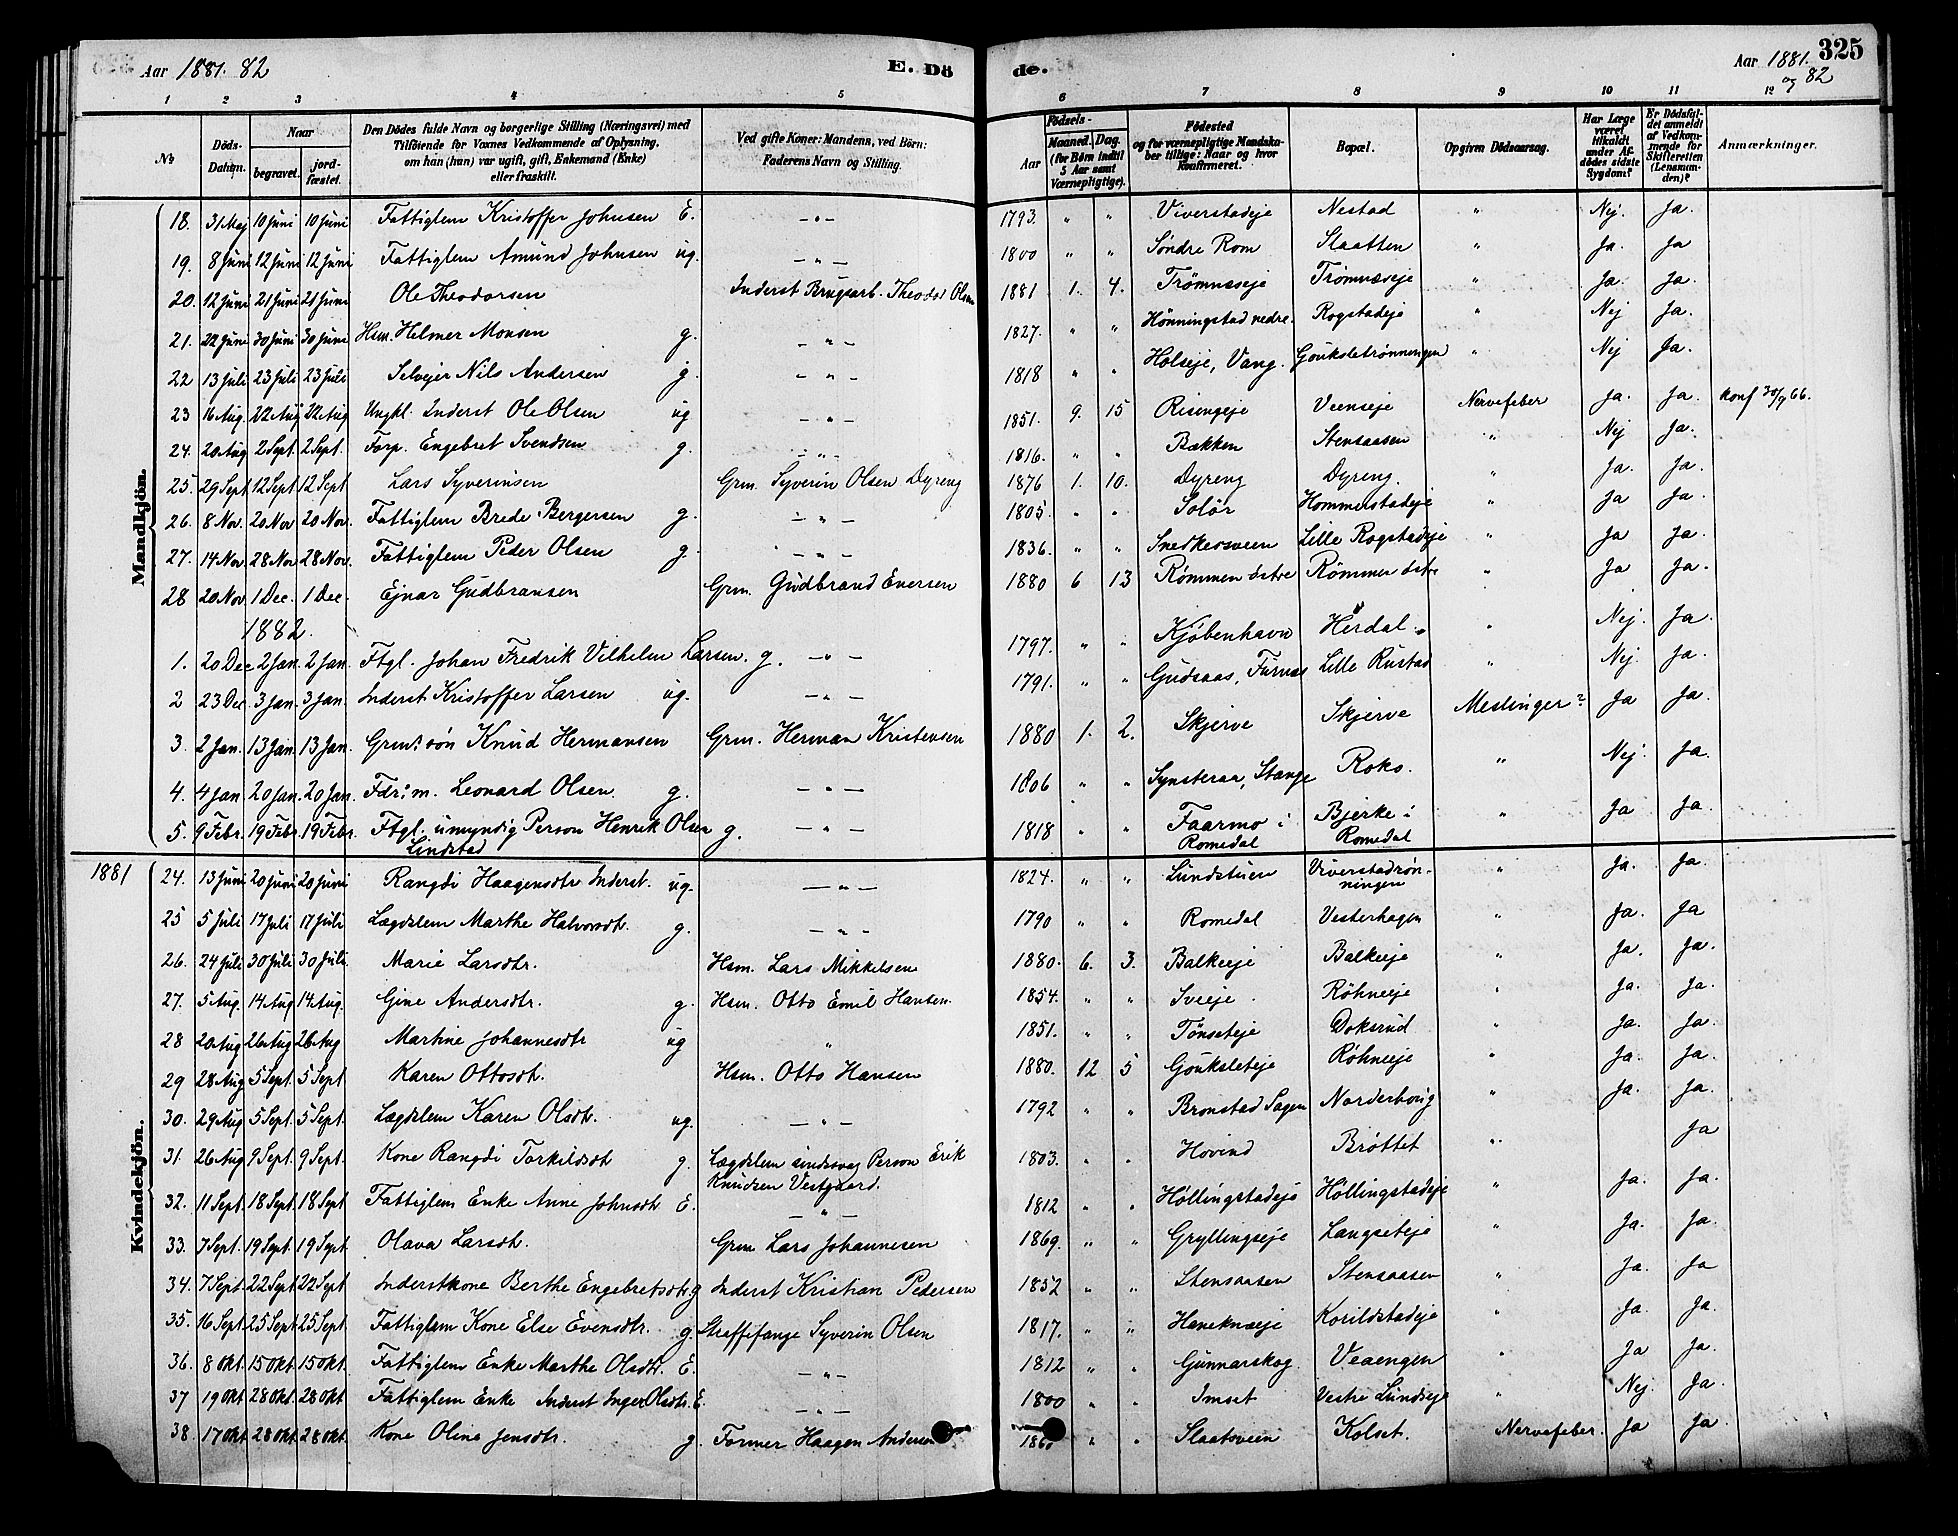 Aar 1881. 82
E. Dö
de.
Aar 1881. 325
og 82
1 2 3 4 5 6 7 8 9 10 11 12
No
Döds-Datum.
Naar
begravet. jord-fæstet.
Den Dödes fulde Navn og borgerlige Stilling (Næringsvei) med Tilföiende for Voxnes Vedkommende af Oplysning, om han (hun) var ugift, gift, Enkemand (Enke) eller fraskilt.
Ved gifte Koner: Mandens, ved Börn: Faderens Navn og Stilling.
Födsels-
Aar Maaned. Dag.
(for Börn indtil 5 Aar samt Værnepligtige).
Födested og for værnepligtige Mandskaber tillige: Naar og hvor Konfirmeret.
Bopæl.
Opgiven Dödsaarsag.
Har Læge været tilkaldt under Afdödes sidste Sygdom?
Er Dödsfaldet anmeldt af Vedkommende for Skifteretten (Lensmanden)?
Anmærkninger.
Mandkjön.
18. 31 Maj 10 Juni 10 Juni Fattiglem Kristoffer Johnsen E. — " — 1793. " " Viverstadeje Nestad " Nej. Ja.
19. 8 Juni 12 Juni 12 Juni Fattiglem Amund Johnsen ug. — " — 1800 " " Söndre Rom Slaatten " Ja. Ja
20. 12 Juni 21 Juni 21 Juni Ole Theodorsen Inderst Brugsarb. Theodor Olsen 1881 1. 4. Trömnæseje Trömnæseje " Ja. Ja.
21. 22 Juni 30 Juni 30 Juni Hsm. Helmer Monsen g. — " — 1827. " " Hönningstad nedre. Rogstadeje " Nej Ja.
22 13 Juli 23 Juli 23 Juli Selvejer Nils Andersen g. — " — 1818 " " Holseje, Vang. Gouksletrönningen " Nej Ja.
23 16 Aug. 22 Aug 22 Aug Ungkl. Inderst Ole Olsen ug — " — 1851. 9. 15 Risengeje Veenseje Nervefeber Ja. Ja. Konf 30/9 66.
24. 20 Aug 2 Sept. 2 Sept. Forp. Engebret Svendsen g. — " — 1816. " " Bækken Stensaasen " Nej Ja.
25. 29 Sept. 12 Sept 12 Sept Lars Syverinsen Grm. Syverin Olsen Dyreng 1876 1. 10. Dyreng Dyreng. " Ja. Ja.
26. 8 Nov. 20 Nov 20 Nov. Fattiglem Brede Bergersen g. — " — 1805. " " Solör Hommerstadeje " Ja Ja.
27. 14 Nov. 28 Nov 28 Nov. Fattiglem Peder Olsen g — " — 1836. " " Snedkersveen Lille Rogstadeje " Ja Ja.
28 20 Nov. 1 Dec. 1 Dec. Ejnar Gudbransen Grm. Gudbrand Evensen 1880 6 13 Römmen östre Römmen östre " Ja Ja.
1882.
1. 20 Dec 2 Jan. 2 Jan. Ftgl. Johan Fredrik Vilhelm Larsen. g. — " — 1797. " " Kjöbenhavn Herdal. " Nej. Ja.
2 23 Dec 3 Jan. 3 Jan. Inderst Kristoffer Larsen ug. — " — 1791. " " Gudsaas, Furnæs Lille Rustad " Nej. Ja.
3. 2 Jan. 13 Jan. 13 Jan. Grm. sön Knud Hermansen Grm. Herman Kristensen 1880 1. 2. Skjerve Skjerve Meslinger? Ja Ja.
4. 4 Jan 20 Jan. 20 Jan. Fdr.m. Leonard Olsen g. — " — 1806 " " Synsteraa, Stange Roko. " Nej. Ja.
5. 9 Febr. 19 Febr. 19 Febr. Ftgl. umyndig Person Henrik Olsen g. — " — 1818 " " Faarmo i Bjerke i " Ja Ja.
Lindstad Romedal Romedal
Kvindekjön.
1881 24. 13 Juni 20 Juni 20 Juni Rangdi Haagensdtr Inderst. ug. — " — 1824. " " Lundstuen Viverstadrön- " Ja. Ja.
ningen
25 5 Juli 17 Juli 17 Juli Lægdslem Marthe Halvorsdtr. g. — " — 1790 " " Romedal Vesterhagen " Ja. Ja
26. 24 Juli 30 Juli 30 Juli. Marie Larsdtr. Hsm. Lars Mikkelsen 1880. 6. 3. Balkeeje Balkeeje " Ja. Ja.
27. 5 Aug. 14 Aug 14 Aug. Gine Andersdtr. g. Hsm. Otto Emil Hansen. 1854. " " Sveeje. Röhneeje " Ja. Ja.
28 20 Aug 26 Aug 26 Aug Martine Johannesdtr ug " 1851. " " Tönseteje Doksrud " Ja. Ja.
29 28 Aug 5 Sept. 5 Sept Karen Ottosdtr. Hsm. Otto Hansen 1880. 12 5 Gouksleteje Röhneeje " Ja. Ja.
30. 29 Aug 5 Sept. 5 Sept. Lægdslem Karen Olsdtr. ug. — " — 1792 " " Bronstad Sagen Norderhoug " Ja. Ja.
31. 26 Aug 9 Sept. 9 Sept. Kone Rangdi Torkildsdtr g. Lægdslem sindssvag Person Erik 1803. " " Hovind Bröttet " Ja
Knudsen Vestgaard.
32. 11 Sept. 18 Sept. 18 Sept. Fattiglem Enke Anne Johnsdtr E. — " — 1812 " " Höllingstadeje Höllingstadeje " Ja. Ja.
33. 7 Sept. 19 Sept. 19 Sept. Olava Larsdtr. Grm Lars Johannesen 1869. " " Gryllingseje Langseteje " Ja. Ja.
34. 7 Sept. 22 Sept 22 Sept Inderstkone Berthe Engebretsdtr g Inderst Kristian Pedersen 1852 " " Stensaasen Stensaasen " Ja. Ja
35. 16 Sept. 25 Sept. 25 Sept. Fattiglem Kone Else Evensdtr. g Straffefange Syverin Olsen 1817. " " Haneknæeje Korildstadeje " Ja. Ja.
36. 8 Okt 15 Okt 15 Okt. Fattiglem Enke Marthe Olsdtr. E. — " — 1812 " " Gunnarskog. Veaengen " Ja Ja.
37 19 Okt 28 Okt. 28 Okt. Fattiglem Enke Inderst Inger Olsdtr. E. — " — 1800 " " Imset Vestre Lundseje " Nej. Ja.
38. 17 Okt 28 Okt. 28 Okt. Kone Oline Jensdtr. g. Former Haagen Andersen " " Slaatsveen Kolset. Nervefeber. Ja Ja.